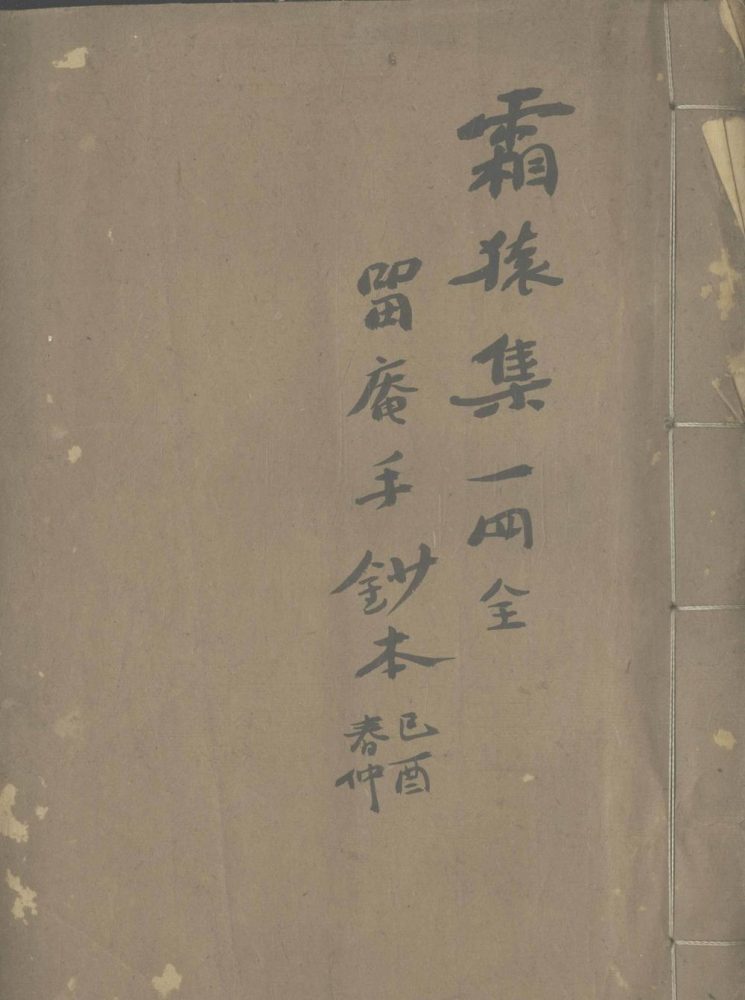 霜猿集一四全
畱庵手鈔本
己酉
春仲